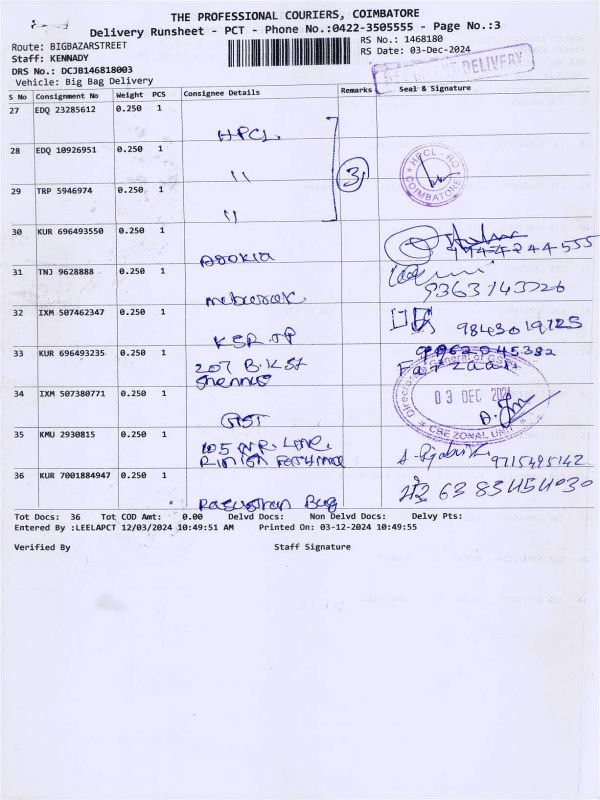 THE PROFESSIONAL COURIERS, COIMBATORE
Delivery Runsheet - PCT - Phone No.:0422-3505555 - Page No.:3
Route: BIGBAZARSTREET
RS No.: 1468180
Staff: KENNADY
RS Date: 03-Dec-2024
DRS No.: DCJB146818003
Vehicle: Big Bag Delivery
DELIVERY
S No Consignment No Weight PCS Consignee Details Remarks Seal & Signature
27 EDQ 23285612 0.250 1
HPCL
28 EDQ 10926951 0.250 1
"
3
HPCL - RO
COIMBATORE
29 TRP 5946974 0.250 1
"
30 KUR 696493550 0.250 1
31 TNJ 9628888 0.250 1
9363143026
32 IXM 507462347 0.250 1
KSR JP
33 KUR 696493235 0.250 1
207 B.K St
34 IXM 507380771 0.250 1
GST
03 DEC 2024
CBE ZONAL UNIT
35 KMU 2930815 0.250 1
9715495142
36 KUR 7001884947 0.250 1
Rajasthan Bag
Tot Docs: 36 Tot COD Amt: 0.00 Delvd Docs: Non Delvd Docs: Delvy Pts:
Entered By :LEELAPCT 12/03/2024 10:49:51 AM Printed On: 03-12-2024 10:49:55
Verified By Staff Signature